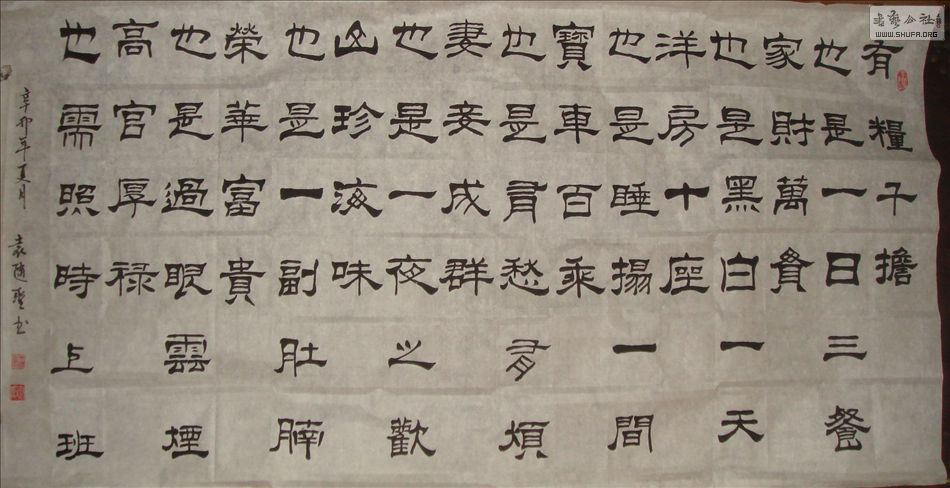 有糧千擔
也是一日三餐
家財萬貫
也是黑白一天
洋房十座
也是睡榻一間
寶車百乘
也是有愁有煩
妻妾成群
也是一夜之歡
山珍海味
也是一副肚腩
榮華富貴
也是過眼雲煙
高官厚禄
也需照時上班
辛卯年夏月
書藝公社
WWW.SHUFA.ORG